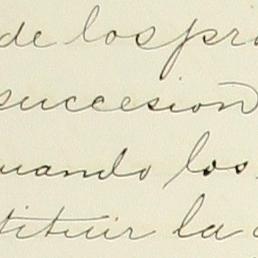 de los pro
succesion
uando los
tituir la